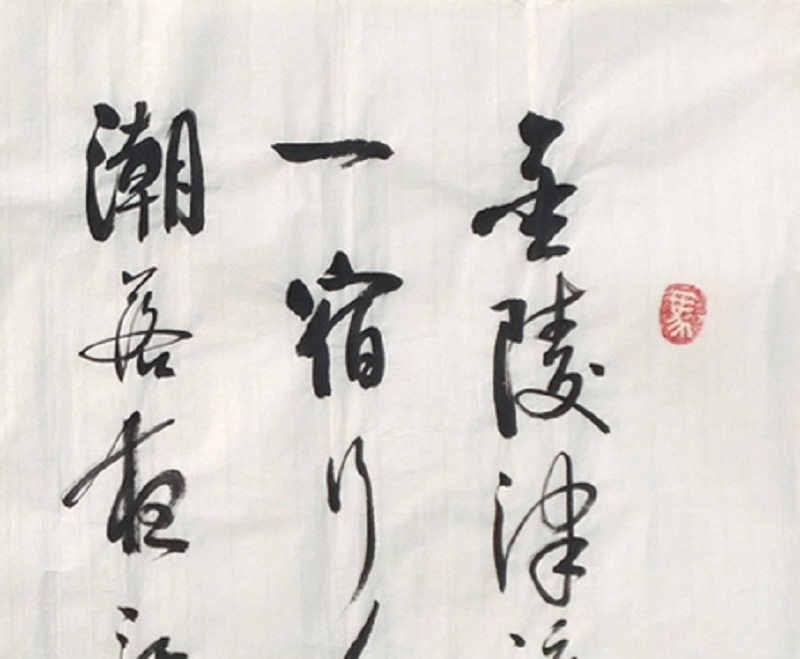 金陵津
一宿行
潮落夜